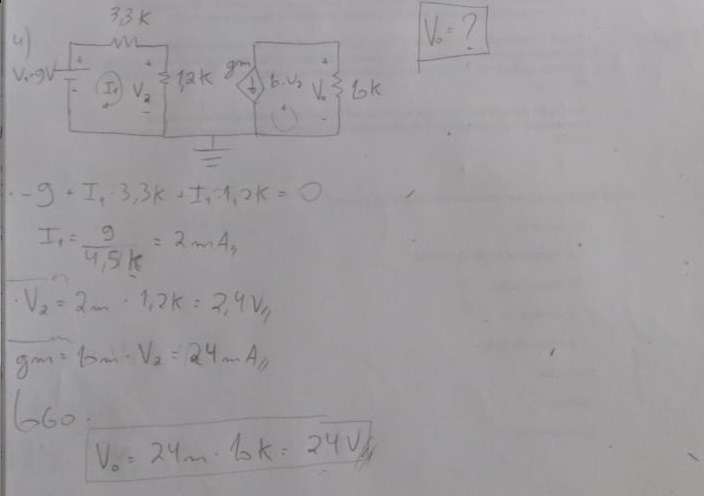 4)
3,3K
V₀ = ?
V₁=9V
I₁
V₂
1,2K
gm
6.V₂
V₀
10K
-9 + I₁·3,3K + I₁·1,2K = 0
I₁ = 9/4,5K = 2mA,,
·V₂ = 2m · 1,2K = 2,4V,,
gm = 10m · V₂ = 24mA,,
LOGO.
V₀ = 24m · 10K = 24V,,